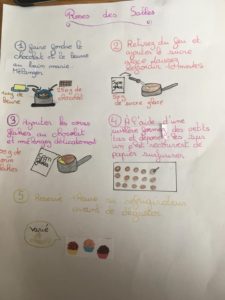 Roses des Sables
1) Faire fondre le
chocolat et le beurre
au bain marie.
Mélanger.
beurre
250g de
chocolat
2) Retirez du feu et
ajouter le sucre
glace laissez
refroidir 10 minutes
50g de
sucre glace
3) Ajouter les corn
flakes au chocolat
et mélanger délicatement
corn
flakes
4) A l'aide d'une
cuillère formez des petits
tas et déposez les sur
un plat recouvert de
papier sulfurisé
5) Réserve 1 heure au réfrigérateur
avant de déguster